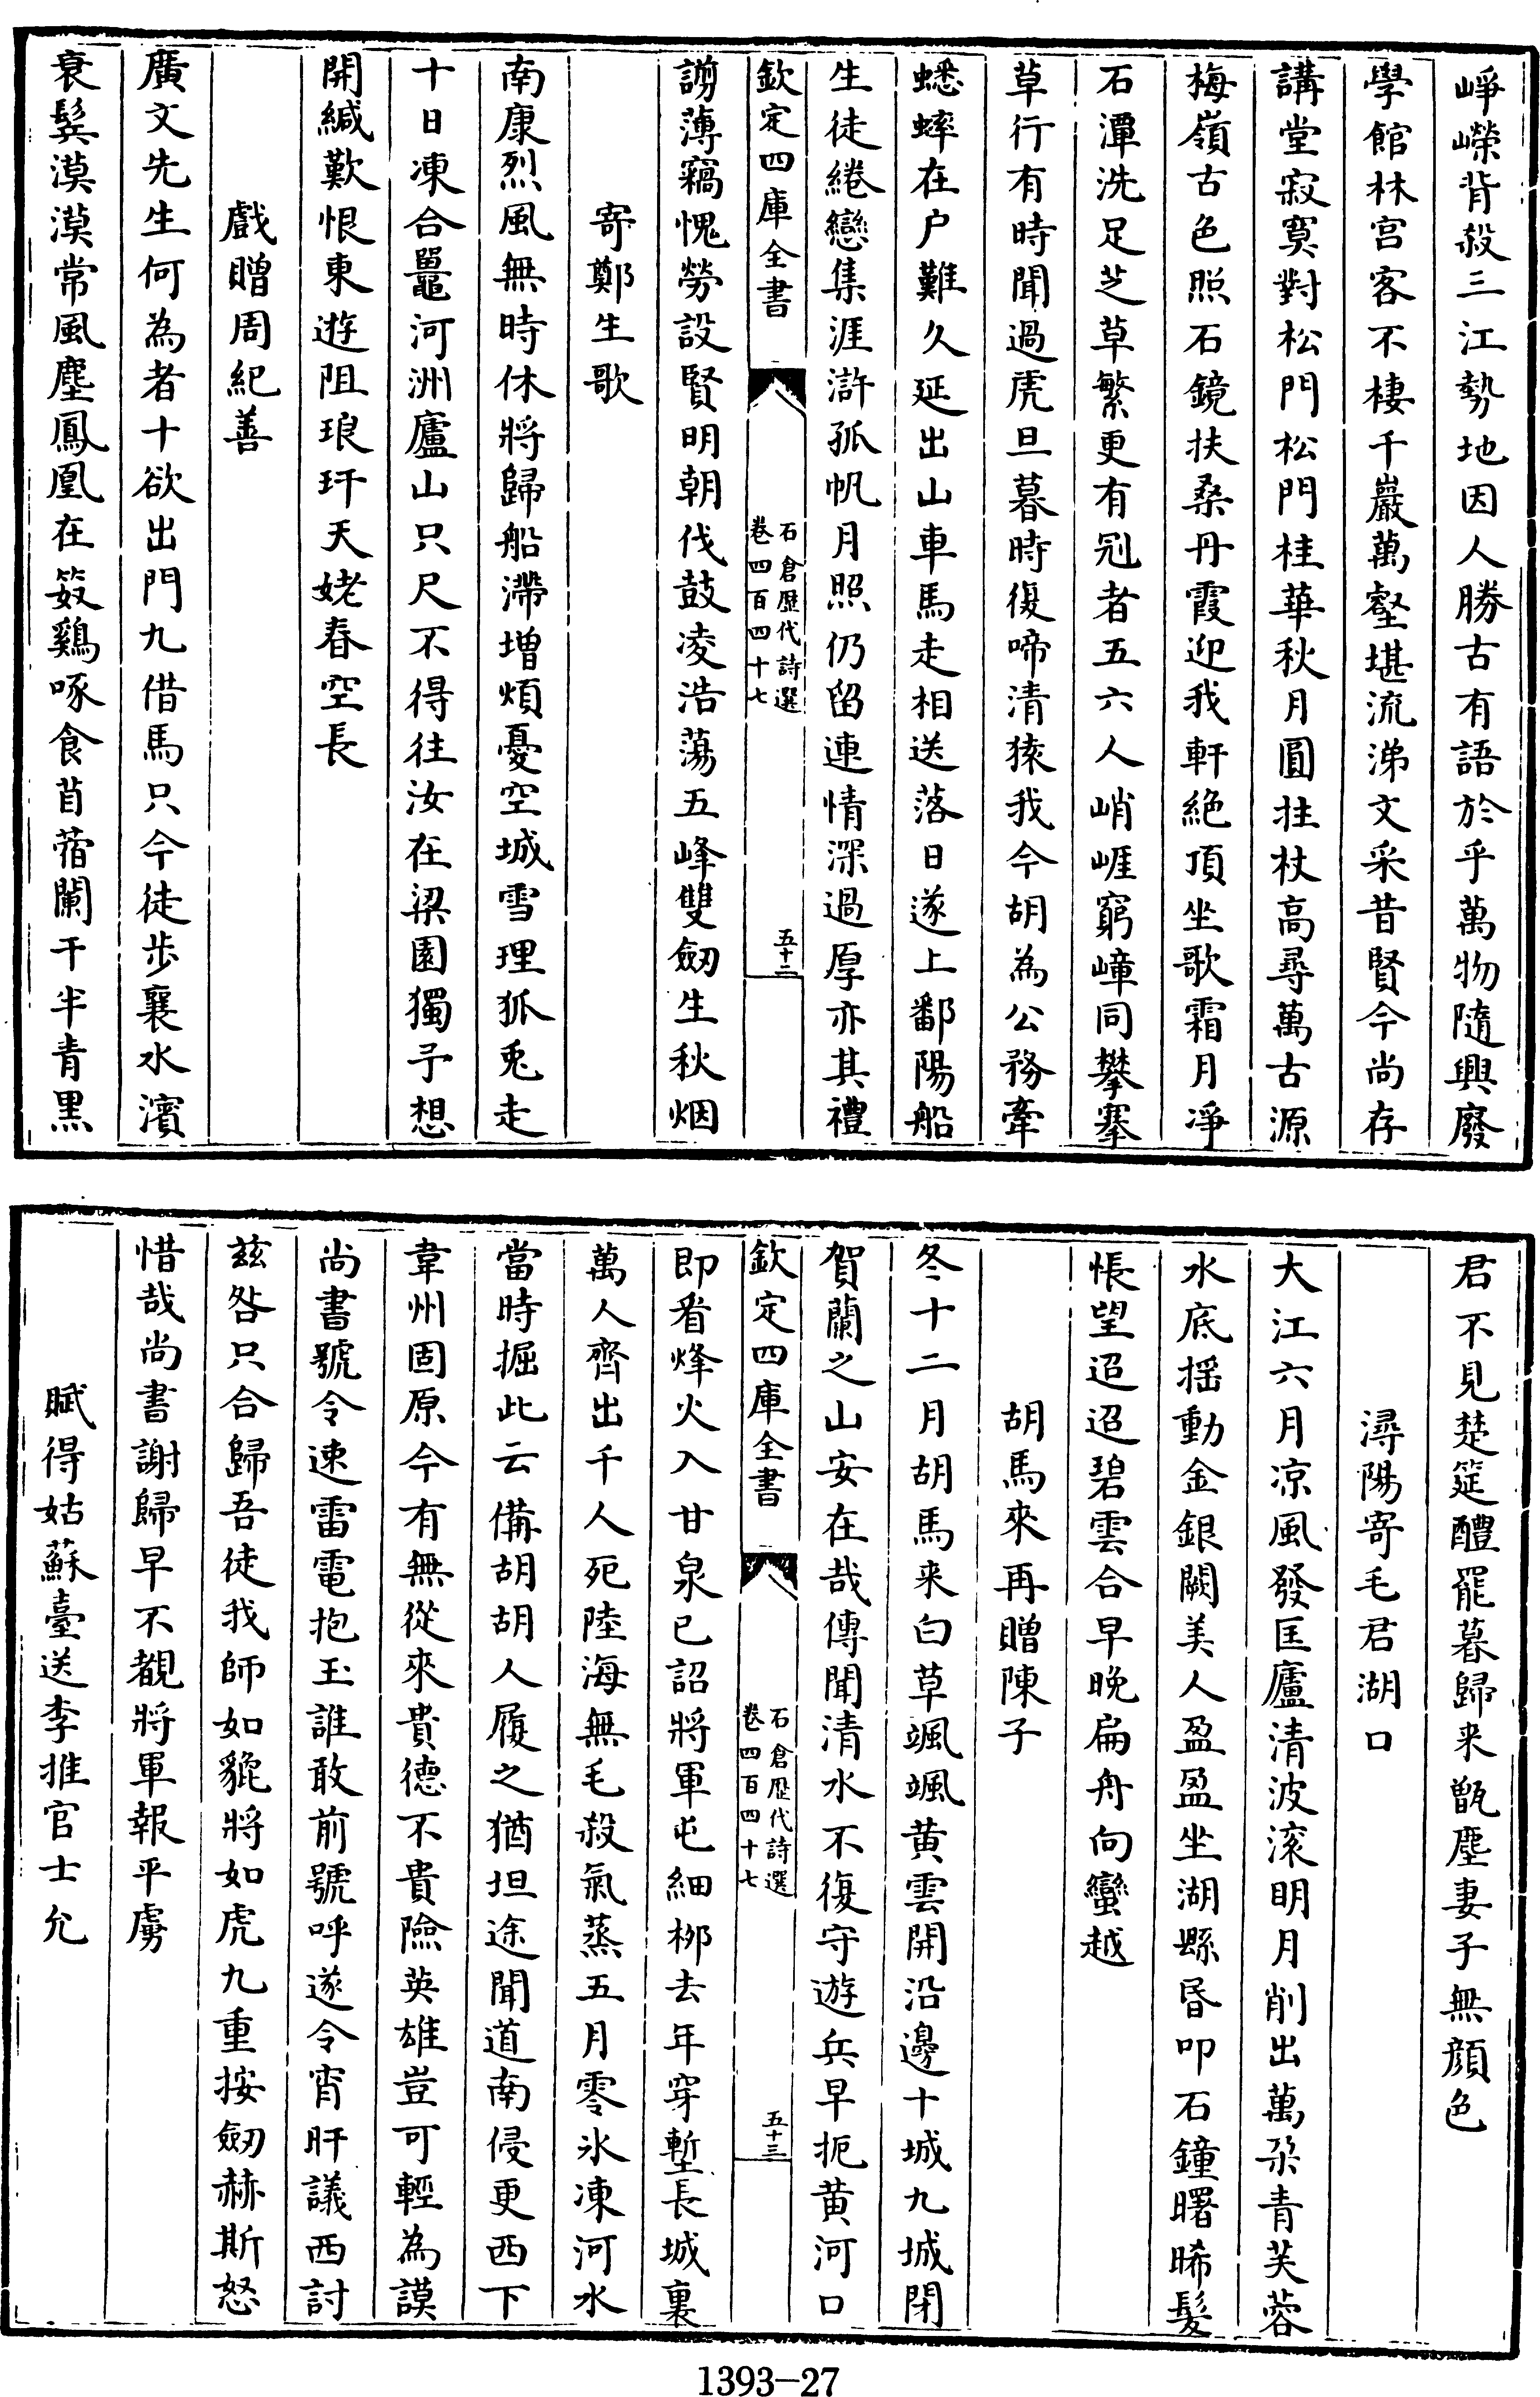 崢嶸背殺三江勢地因人勝古有語於乎萬物隨興廢
學館林宫客不棲千巖萬壑堪流涕文采昔賢今尚存
講堂寂寞對松門松門桂華秋月圓拄杖高尋萬古源
梅嶺古色照石鏡扶桑丹霞迎我軒絶頂坐歌霜月凈
石潭洗足芝草繁更有冠者五六人峭崕窮嶂同攀搴
草行有時聞過虎旦暮時復啼清猿我今胡為公務牽
蟋蟀在户難久延出山車馬走相送落日遂上鄱陽船
生徒綣戀集涯滸孤帆月照仍留連情深過厚亦其禮
欽定四庫全書
石倉歷代詩選
卷四百四十七
五十二
謭薄竊愧勞設賢明朝伐鼓凌浩蕩五峰雙劒生秋烟
寄鄭生歌
南康烈風無時休將歸船滯增煩憂空城雪理狐兎走
十日凍合鼉河洲廬山只尺不得往汝在梁園獨予想
開緘歎恨東遊阻琅玕天姥春空長
戲贈周紀善
廣文先生何為者十欲出門九借馬只今徒歩襄水濱
衰鬂漠漠常風塵鳳凰在笯鷄啄食苜蓿闌干半青黒
君不見楚筵醴罷暮歸来甑塵妻子無顔色
潯陽寄毛君湖口
大江六月凉風發匡廬清波滚明月削出萬朶青芙蓉
水底揺動金銀闕美人盈盈坐湖縣昏叩石鐘曙晞髪
悵望迢迢碧雲合早晚扁舟向蠻越
胡馬來再贈陳子
冬十二月胡馬来白草颯颯黄雲開沿邊十城九城閉
賀蘭之山安在哉傳聞清水不復守遊兵早扼黄河口
欽定四庫全書
石倉歷代詩選
卷四百四十七
五十三
即看烽火入甘泉已詔將軍屯細柳去年穿塹長城裏
萬人齊出千人死陸海無毛殺氣蒸五月零氷凍河水
當時掘此云備胡胡人履之猶坦途聞道南侵更西下
韋州固原今有無從來貴德不貴險英雄豈可輕為謨
尚書號令速雷電抱玉誰敢前號呼遂令宵旰議西討
兹咎只合歸吾徒我師如貔將如虎九重按劒赫斯怒
惜哉尚書謝歸早不覩將軍報平虜
賦得姑蘇臺送李推官士允
1393-27